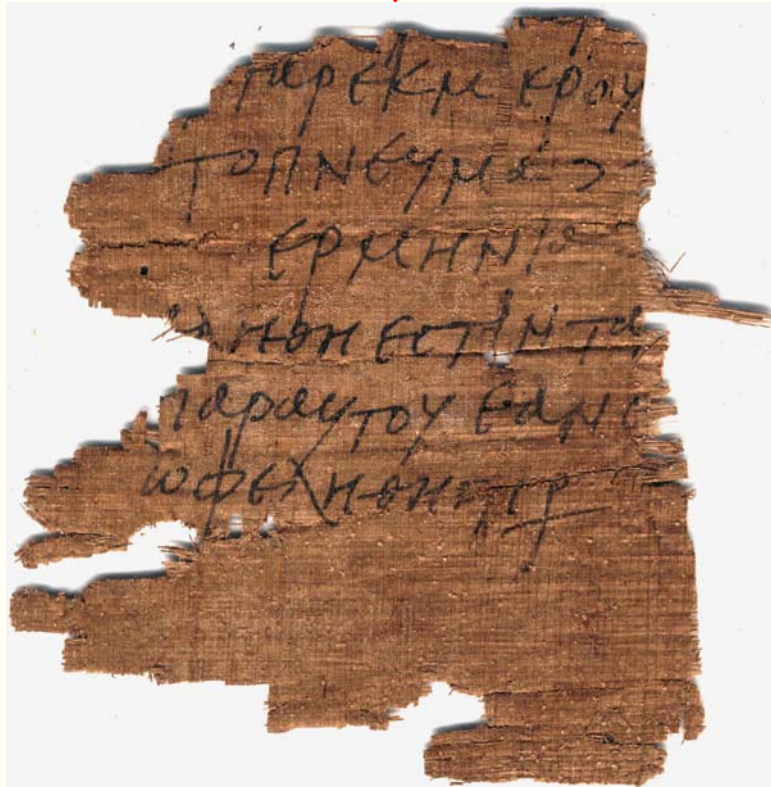 γαρεκμ ετρου
τοπνευμα
ερμηνια
αληθηεστιντα
παραυτουεαν
ωφεληθης ⳨